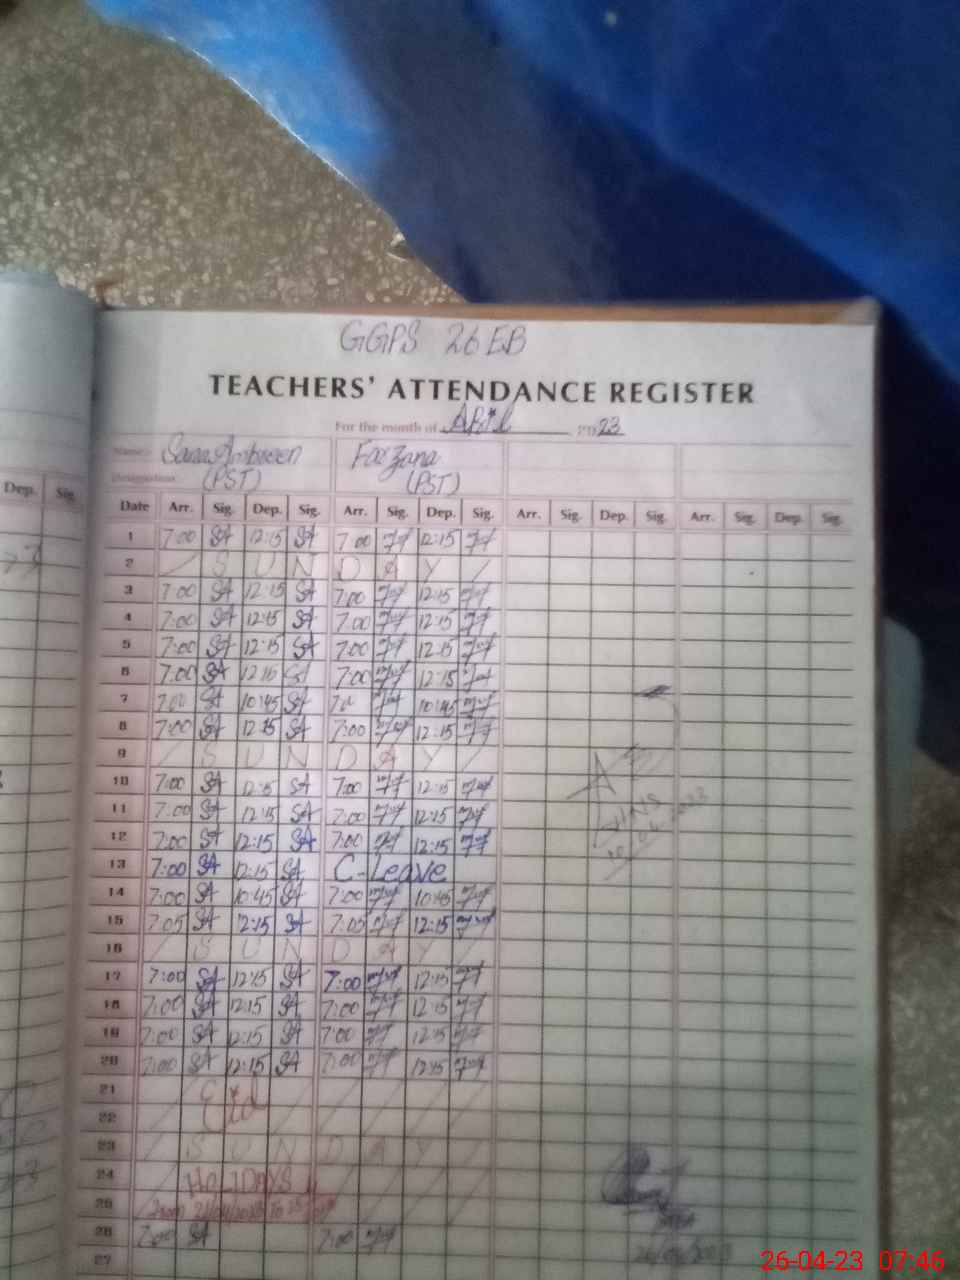 GGPS 26 EB
TEACHERS' ATTENDANCE REGISTER
For the month of April 2023
Name Sara Ambreen Farzana
Designation (PST) (PST)
Dep. Sig.
Date Arr. Sig. Dep. Sig. Arr. Sig. Dep. Sig. Arr. Sig. Dep. Sig. Arr. Sig. Dep. Sig.
1 7:00 SA 12:15 SA 7:00 12:15
2 S U N D A Y
3 7:00 SA 12:15 SA 7:00 12:15
4 7:00 SA 12:15 SA 7:00 12:15
5 7:00 SA 12:15 SA 7:00 12:15
6 7:00 SA 12:15 SA 7:00 12:15
7 7:00 SA 10:45 SA 10:45
8 7:00 SA 12:15 SA 7:00 12:15
9 S U N D A Y
10 7:00 SA 12:15 SA 7:00 12:15
11 7:00 SA 12:15 SA 7:00 12:15
12 7:00 SA 12:15 SA 7:00 12:15
13 7:00 SA 12:15 SA C-Leave
14 7:00 SA 10:45 SA 7:00 10:45
15 7:05 SA 12:15 SA 7:05 12:15
16 S U N D A Y
17 7:00 SA 12:15 SA 7:00 12:15
18 7:00 SA 12:15 SA 7:00 12:15
19 7:00 SA 12:15 SA 7:00 12:15
20 7:00 SA 12:15 SA 7:00 12:15
21 Eid
22
23 S U N D A Y
24 HOLIDAYS
25 From 21/04/2023 To
26 7:00 SA 7:00
27
26-04-23 07:46